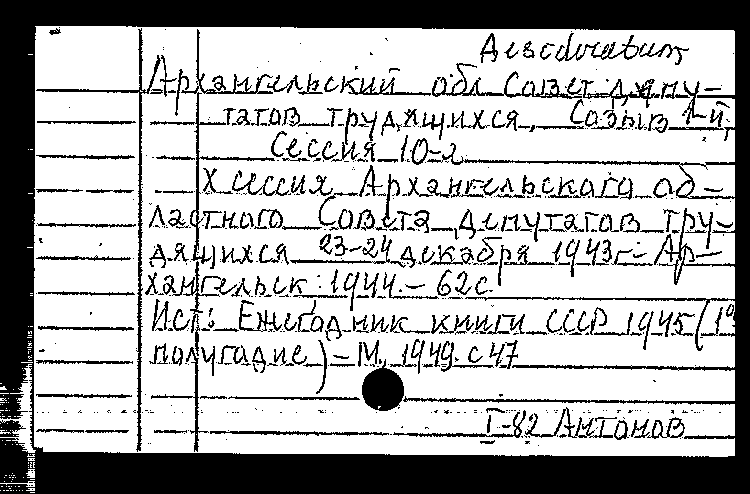 Desideratum
Архангельский обл Совет депу-
татов трудящихся, Созыв 1-й,
Сессия 10-я
X сессия Архангельского об-
ластного Совета депутатов тру-
дящихся 23-24 декабря 1943г.- Ар-
хангельск: 1944.- 62с
Ист: Ежегодник книги СССР 1945(1
полугодие)-М, 1949. с 47
I-82 Антонов